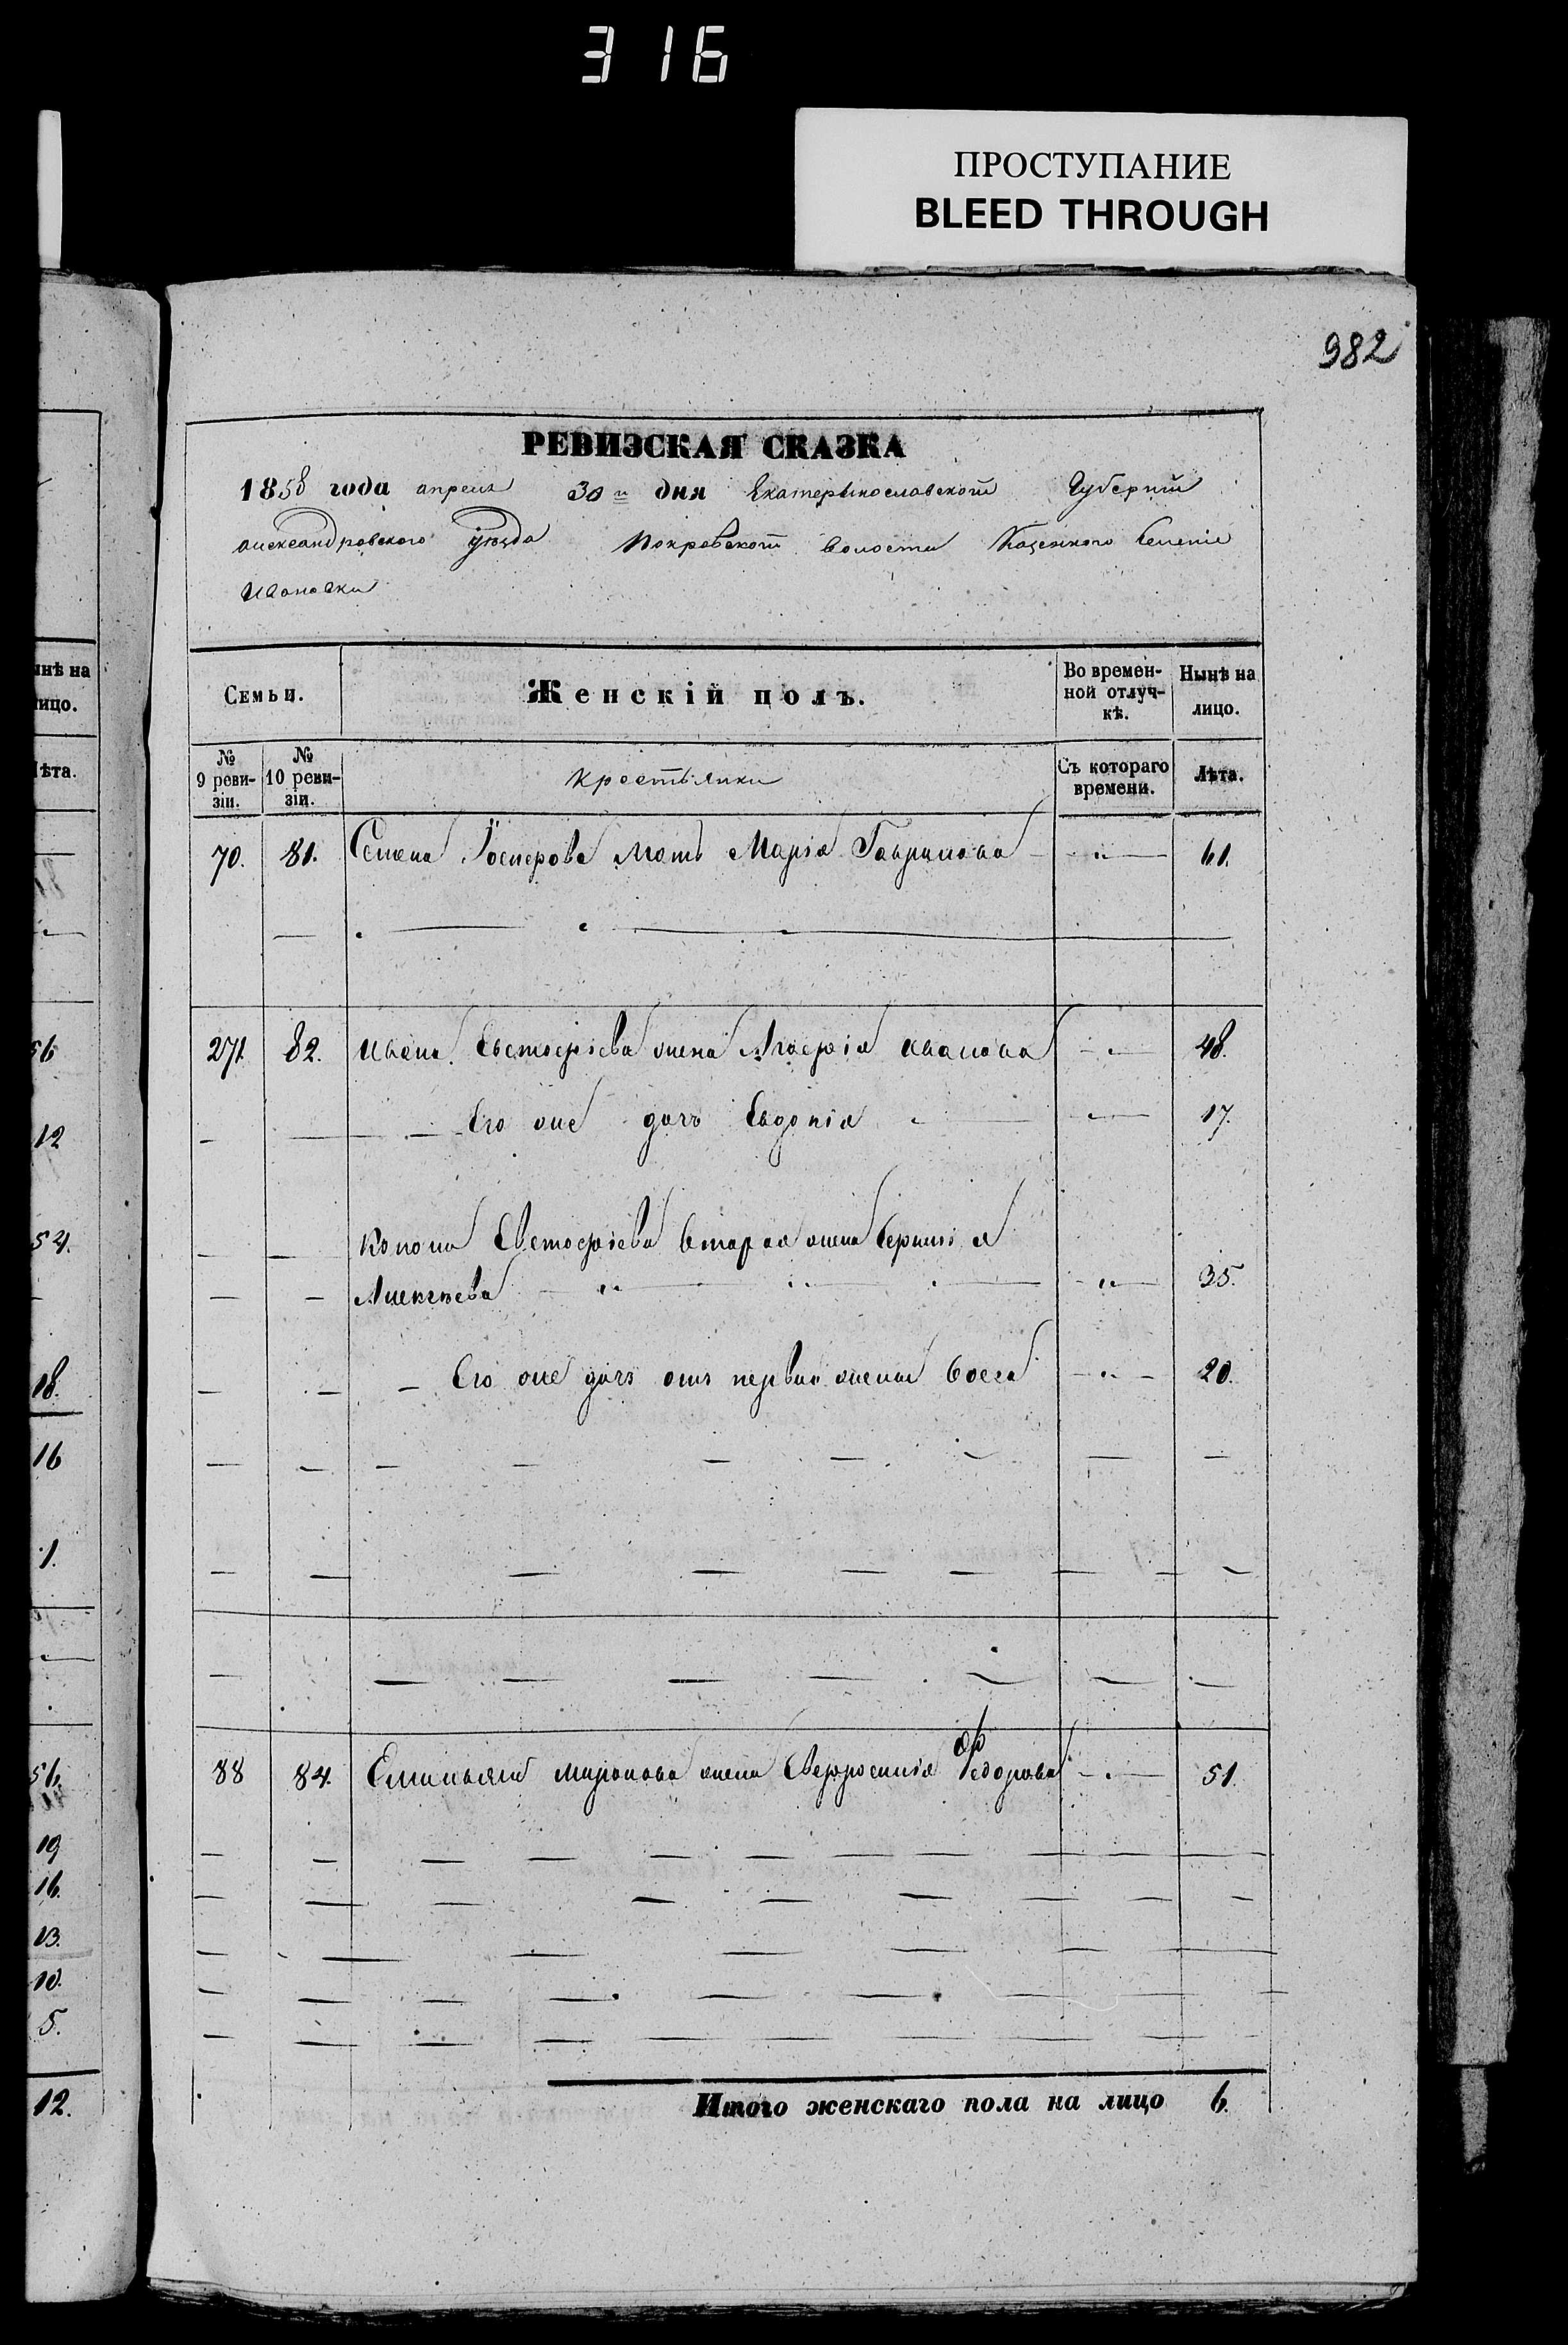 316
ПРОСТУПАНИЕ
BLEED THROUGH
982
РЕВИЗСКАЯ СКАЗКА
1858 года апреля 30 го дня Екатеринославской Губернии
Александровского уезда Покровской волости Казенного Селение
Ивановки
Семьи. Женскій полъ. Во времен-ной отлуч-кѣ. Нынѣ на лицо.
№ 9 реви-зіи. № 10 реви-зіи. Крестьянки Съ котораго времени. Лѣта.
70. 81. Семена мать Марія Гаврилова 61.
271. 82. Ивана Евстафіева жена Агафія Иванова 48.
Его же дочь Евдокія 17.
Конона Евстафіева вторая жена
Алексѣева 35.
Его же дочь отъ первой жены 20.
88 84. Емильяна Миронова жена Евфросинія Федорова 51.
Итого женскаго пола на лицо 6.
инѣ на
ицо.
ѣта.
56
12
54.
18.
16
1.
56.
19
16.
13.
10.
5.
12.